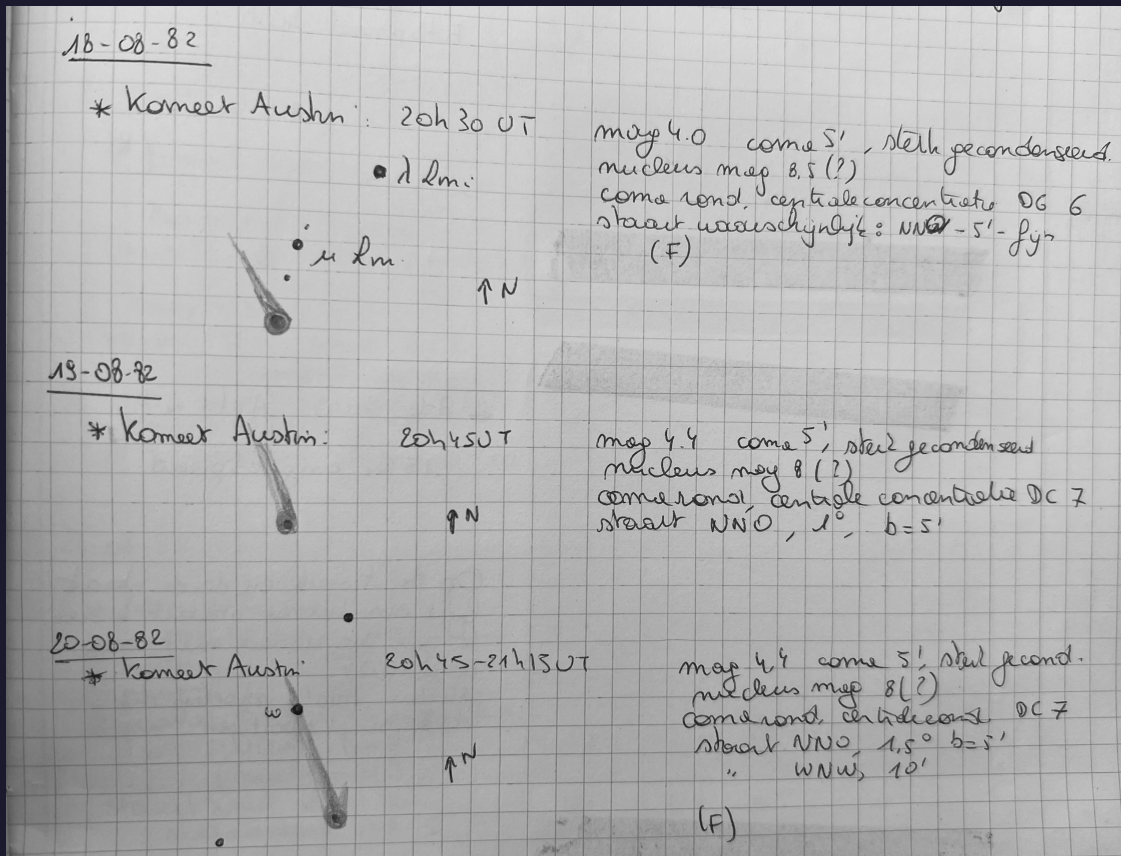 18-08-82
* Komeet Austin: 20h30 UT
mag 4.0 coma 5', sterk gecondenseerd.
nucleus mag 8,5 (?)
coma rond, centrale concentratie DG 6
staart waarschijnlijk: NNO - 5' - fijn
(F)
λ Lmi
μ Lm
↑ N
19-08-82
* Komeet Austin: 20h45UT
mag 4.4 coma 5', sterk gecondenseerd
nucleus mag 8 (?)
coma rond, centrale concentratie DC 7
staart NNO, 1°, b=5'
↑ N
20-08-82
* Komeet Austin: 20h45-21h15UT
mag 4,4 coma 5', sterk gecond.
nucleus mag 8(?)
coma rond, centrale cond. DC 7
staart NNO, 1,5° b=5'
" WNW, 10'
(F)
ω
↑ N